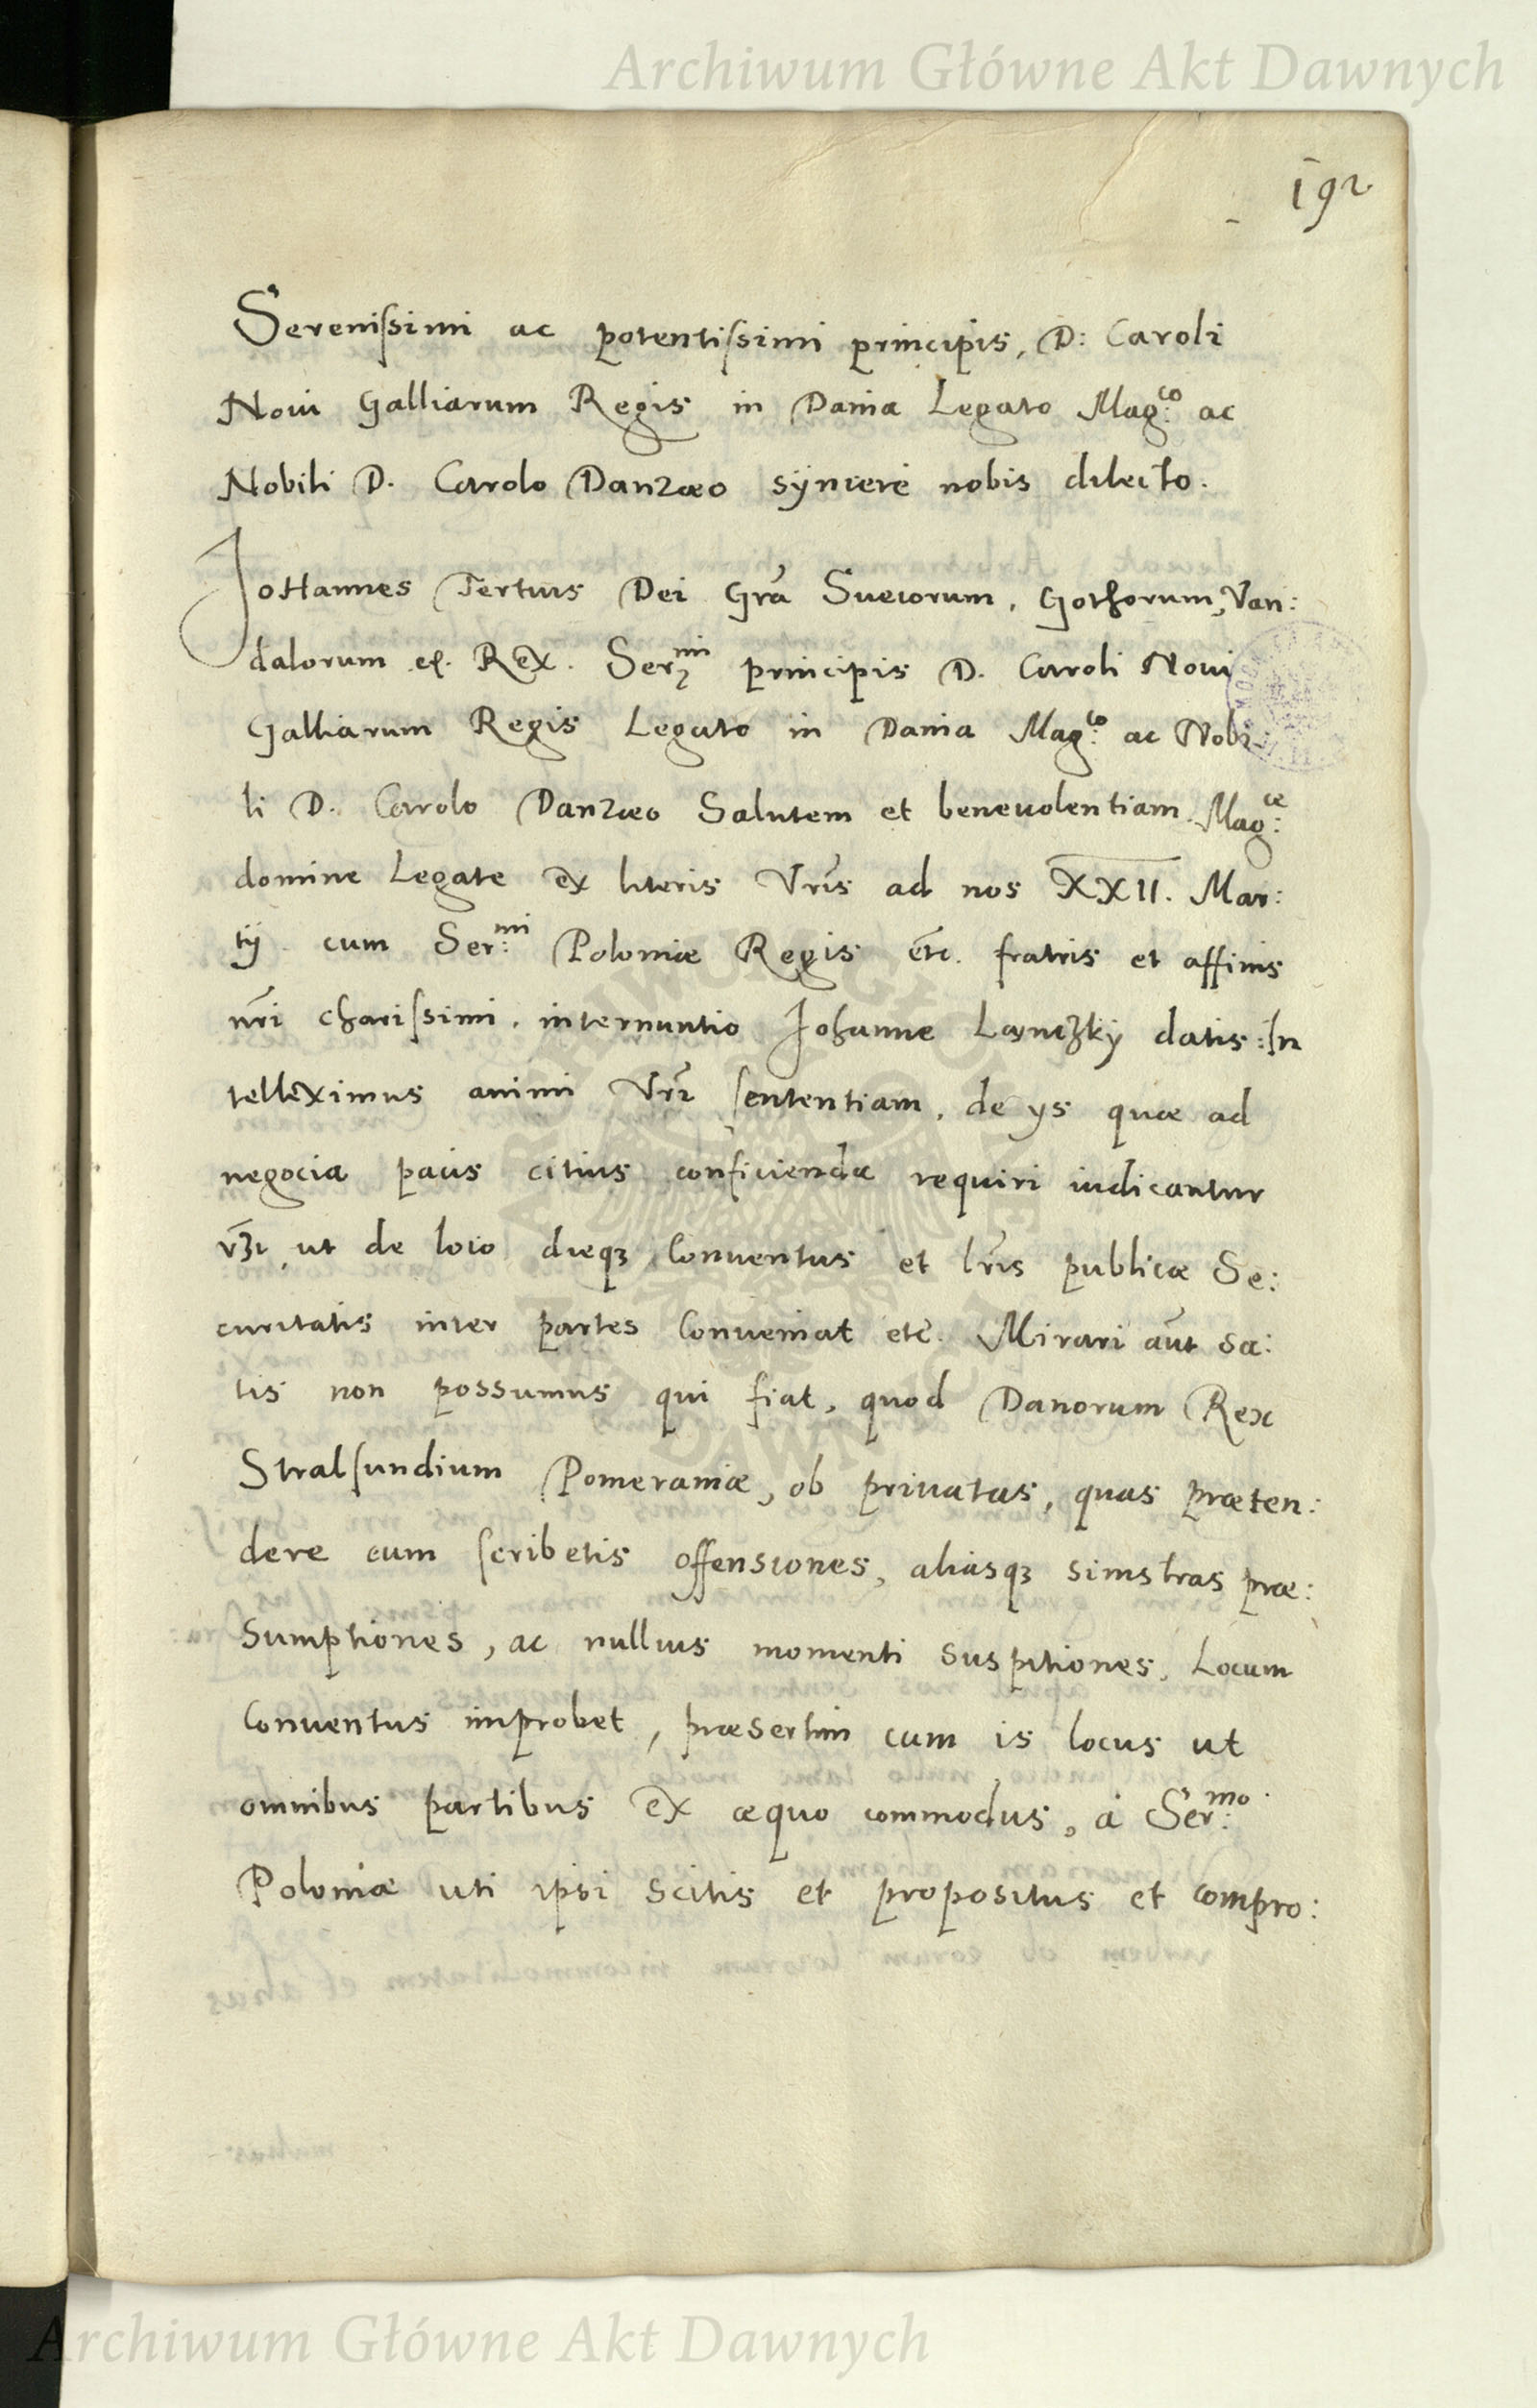 Archiwum Główne Akt Dawnych
192
Serenißimi ac potentißimi principis, D: Caroli
Noui Galliarum Regis in Dania Legato Mag:co ac
Nobili D. Carolo Danzæo syncere nobis dilecto.
Johannes Tertius Dei Gra͂ Sueiorum, Gothorum, Van:
dalorum etc. Rex. Ser:mi principis D. Caroli Noui
Galliarum Regis Legato in Dania Mag:co ac Nobi
li D. Carolo Danzæo Salutem et beneuolentiam. Mag:ce
domine Legate ex literis Vr͂is ad nos XXII. Mar:
tij cum Ser:mi Poloniæ Regis etc. fratris et affinis
nr͂i charißimi, internuntio Johanne Lanczkÿ datis: In
telleximus animi Vr͂i sententiam, de ijs quæ ad
negocia pacis citius conficienda requiri iudicantur
vz, ut de loco dieqꝫ Conuentus et lr͂is publicæ Se:
curitatis inter partes Conueniat etc. Mirari aũt sa:
tis non possumus qui fiat, quod Danorum Rex
Stralsundium Pomeraniæ, ob priuatas, quas præten:
dere eum scribetis offensiones, aliasqꝫ sinistras præ:
sumptiones, ac nullius momenti suspitiones, Locum
Conuentus improbet, præsertim cum is locus ut
omnibus partibus ex æquo commodus, a Ser:mo
Poloniæ uti ipsi scitis et propositus et compro:
Archiwum Główne Akt Dawnych